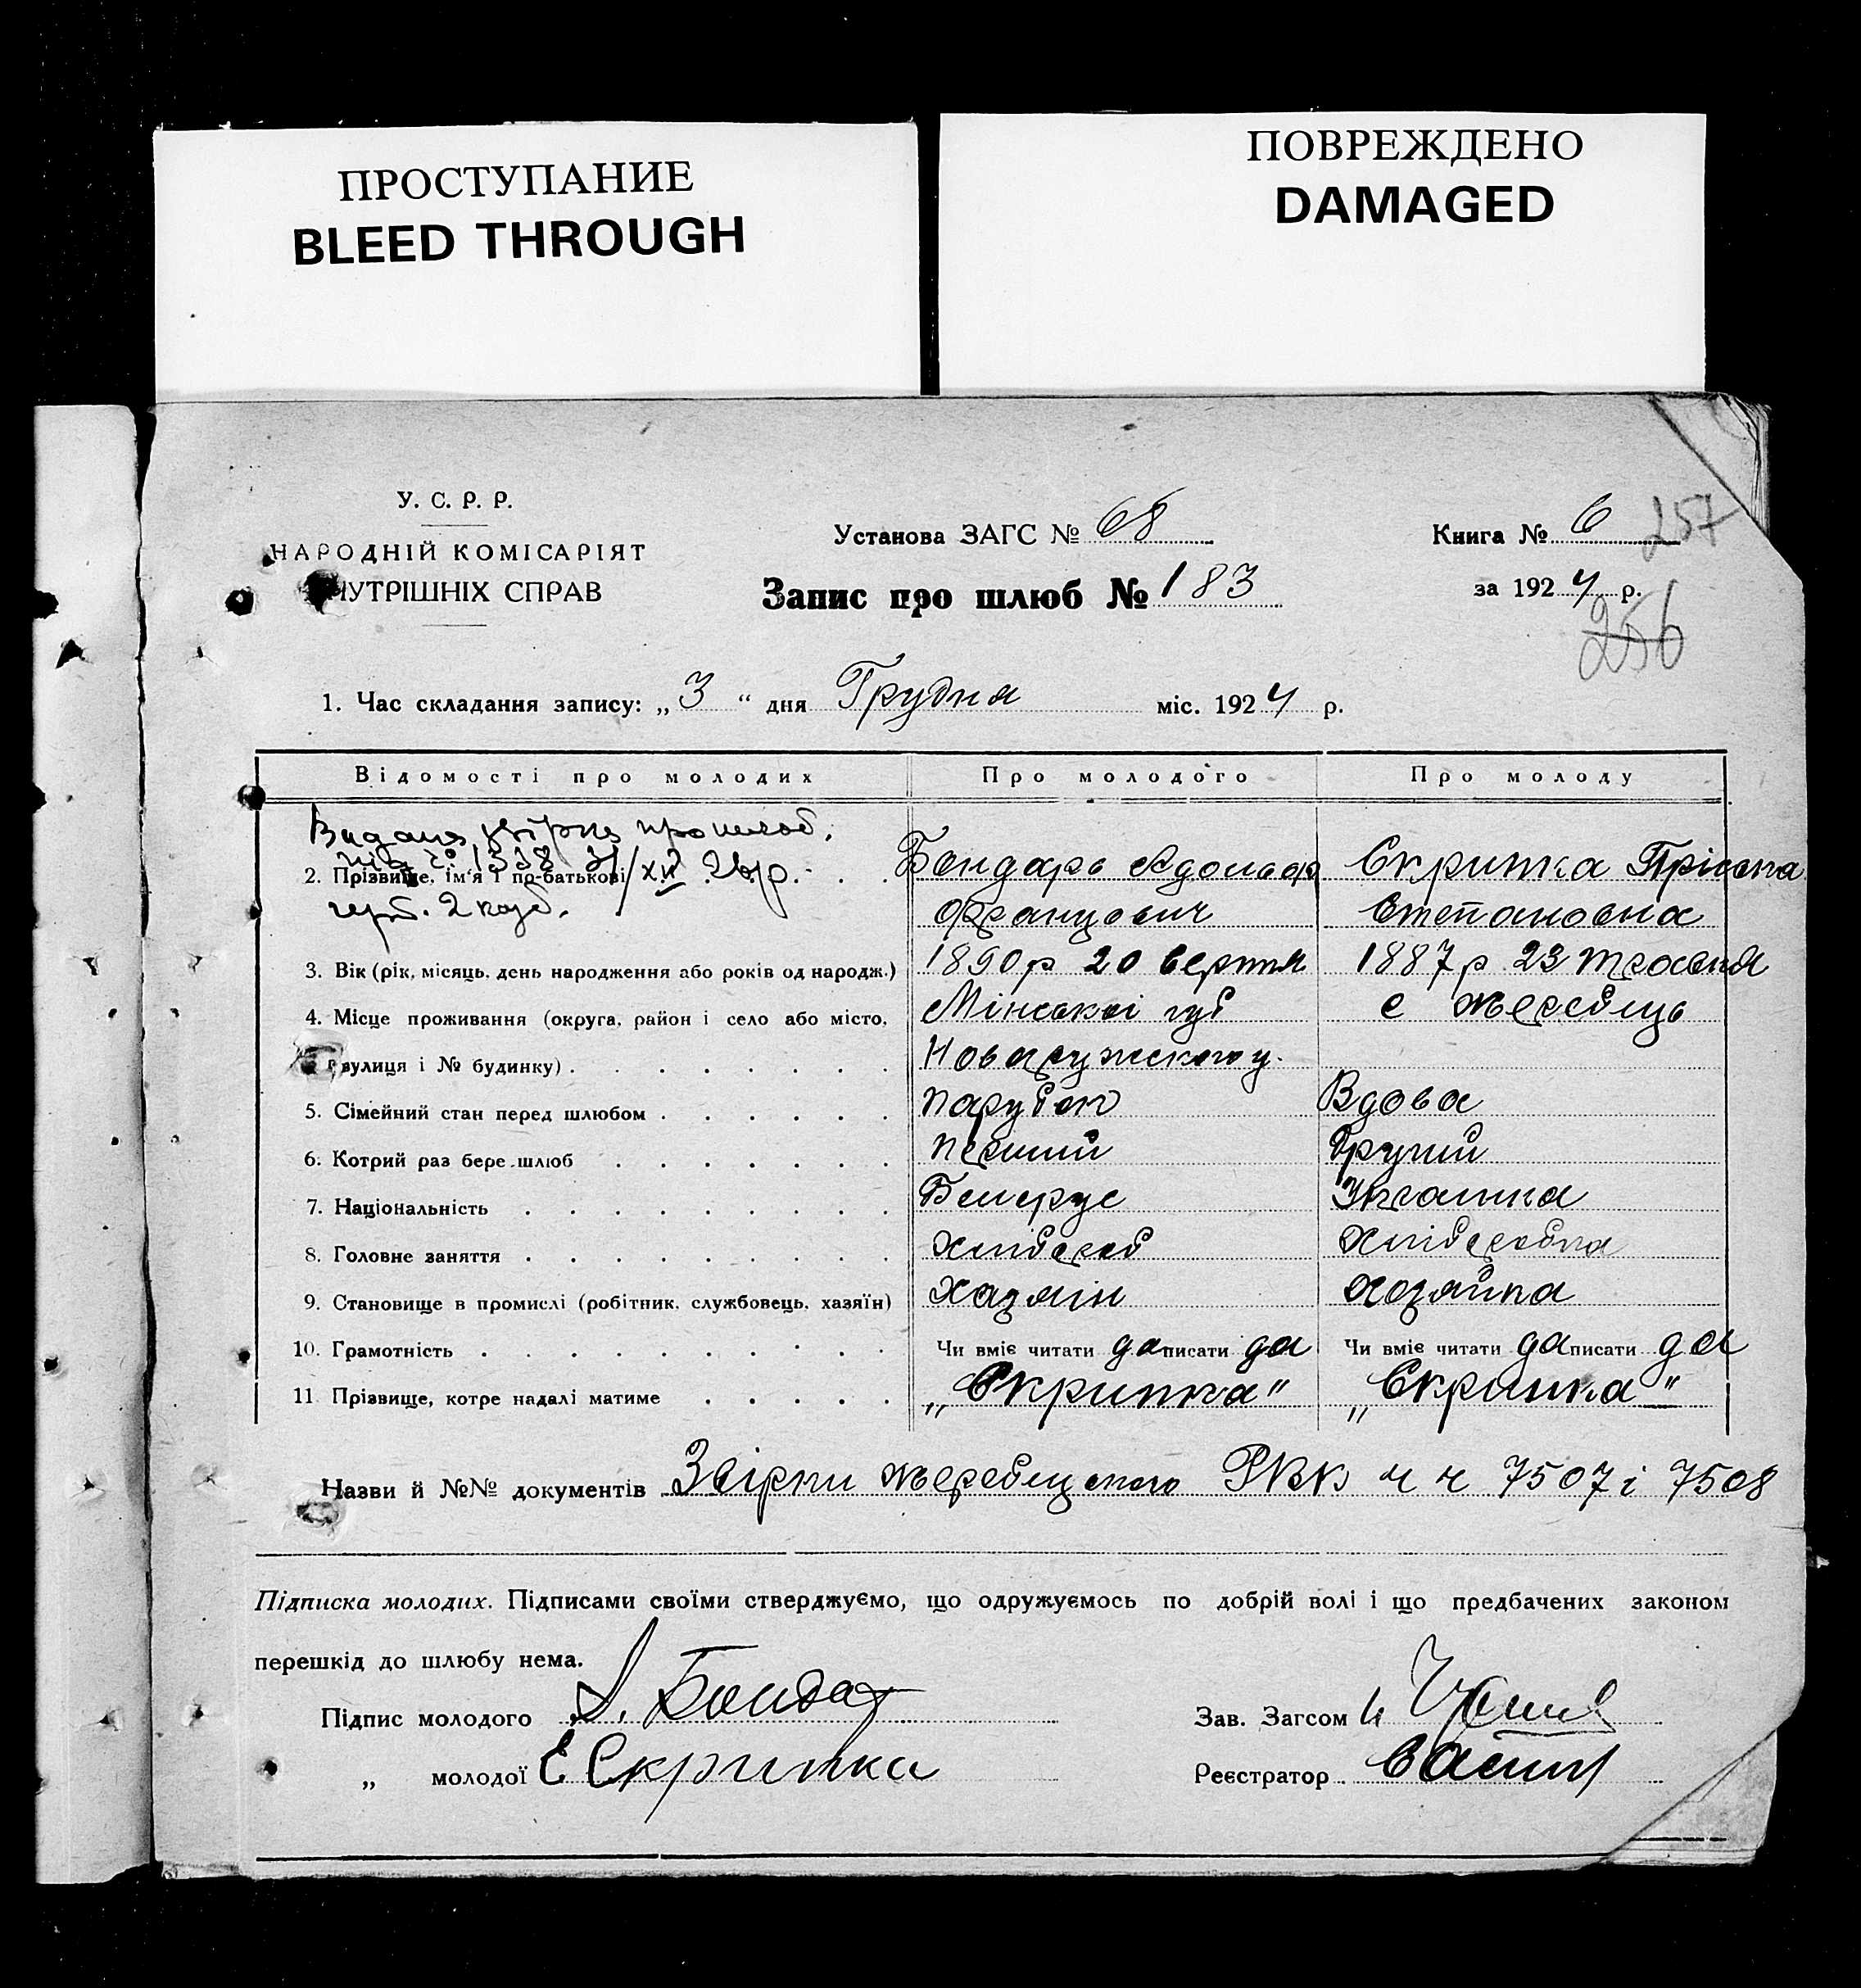 ПРОСТУПАНИЕ
BLEED THROUGH
ПОВРЕЖДЕНО
DAMAGED
У. С. Р. Р.
НАРОДНІЙ КОМІСАРІЯТ
НУТРІШНІХ СПРАВ
Установа ЗАГС № 68
Запис про шлюб № 183
Книга № 6
257
за 1924 р.
256
1. Час складання запису: „3“ дня Грудня міс. 1924 р.
Відомості про молодих Про молодого Про молоду
Видана про шлюб.
1338 31/XII 26 р.
2. Прізвище, ім'я і по-батькові Бондарь Адольф Скрипка Пріська
2 коп. Францович Степановна
3. Вік (рік, місяць, день народження або років од народж.) 1890 р 20 Серпня 1887 р 23 травня
4. Місце проживання (округа, район і село або місто, Мінської губ с Жеребець
вулиця і № будинку)
5. Сімейний стан перед шлюбом парубок Вдова
6. Котрий раз бере шлюб перший Другий
7. Національність Білерус Українка
8. Головне заняття Хлібороб Хліборобка
9. Становище в промислі (робітник, службовець, хазяїн) Хазяїн Хозяйка
10. Грамотність Чи вміє читати да писати да Чи вміє читати да писати да
11 Прізвище, котре надалі матиме „Скрипка" „Скрипка"
Назви й №№ документів Звірки Жеребецького РВК ч ч 7507 і 7508
Підписка молодих. Підписами своїми стверджуємо, що одружуємось по добрій волі і що предбачених законом
перешкід до шлюбу нема.
Підпис молодого А. Бондар
Зав. Загсом
„ молодої Є Скрипка
Реєстратор